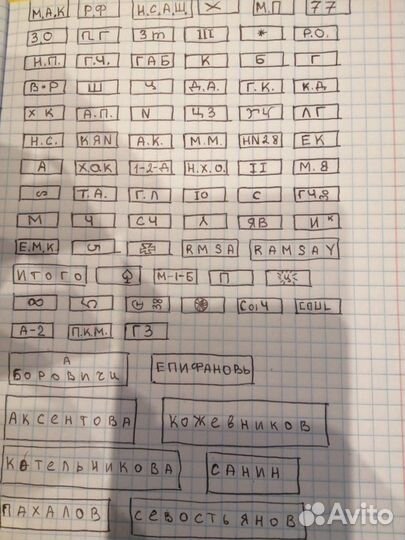 М.А.К Р.Ф И.С.А.Щ. М.П 77
З.О П Г 3 m Ш * Р.О.
Н.П. Г.Ч. ГАБ К Б Г
В-Р Ш Ц Д.А. Г.К. К.Д
Х К А.П. N Ц З ЛГ
Н.С. КЯN А.К. М.М. НN28 ЕК
А Х.О.К 1-2-Д Н.Х.О. II М.8
S Т.А. Г.Л 10 С
М Ч СЧ Х ЯВ И К
Е.М.К 5 RMSA RAMSAY
ИТОГО М-1-Б П
8 5 СО1Ч СОUL
А-2 П.К.М. ГЗ
А
БОРОВИЧИ ЕПИФАНОВЬ
АКСЕНТОВА КОЖЕВНИКОВ
КОТЕЛЬНИКОВА САНИН
ПАХАЛОВ СЕВОСТЬЯНОВ
Avito